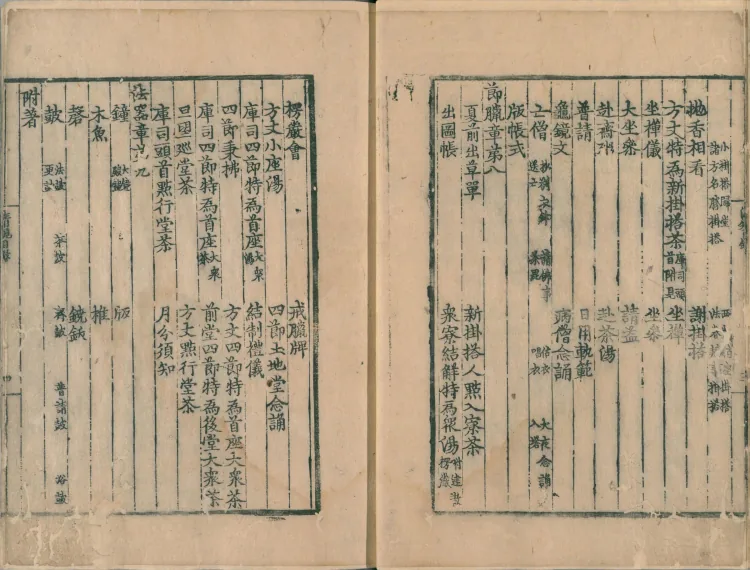 小掛搭歸堂
諸方名勝掛搭
抛香相看 謝掛搭
方丈特為新掛搭茶 庫司頭首附見 坐禪
坐禪儀 坐參
大坐參 請益
赴齋粥 赴茶湯
普請 日用軌範
龜鏡文 病僧念誦
亡僧 抄劄衣鉢 請佛事 估衣 大夜念誦
送亡 茶毘 唱衣 入塔
版帳式
節臘章第八
夏前出草單 新掛搭人點入寮茶
出圖帳 衆寮結解特為衆湯 附建散楞嚴
楞嚴會 戒臘牌
方丈小座湯 四節土地堂念誦
庫司四節特為首座大衆湯 結制禮儀
四節秉拂 方丈四節特為首座大衆茶
庫司四節特為首座大衆茶 前堂四節特為後堂大衆茶
旦望巡堂茶 方丈點行堂茶
庫司頭首點行堂茶 月分須知
法器章第九
鐘 版
木魚 椎
磬 鐃鈸
鼓 法鼓 茶鼓 齋鼓 普請鼓 浴鼓
更鼓
附著